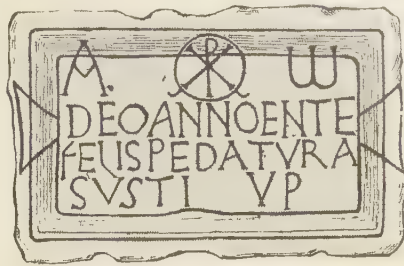 A. ☧ W
DEOANNOENTE
FELISPEDATVRA
SVSTI VP